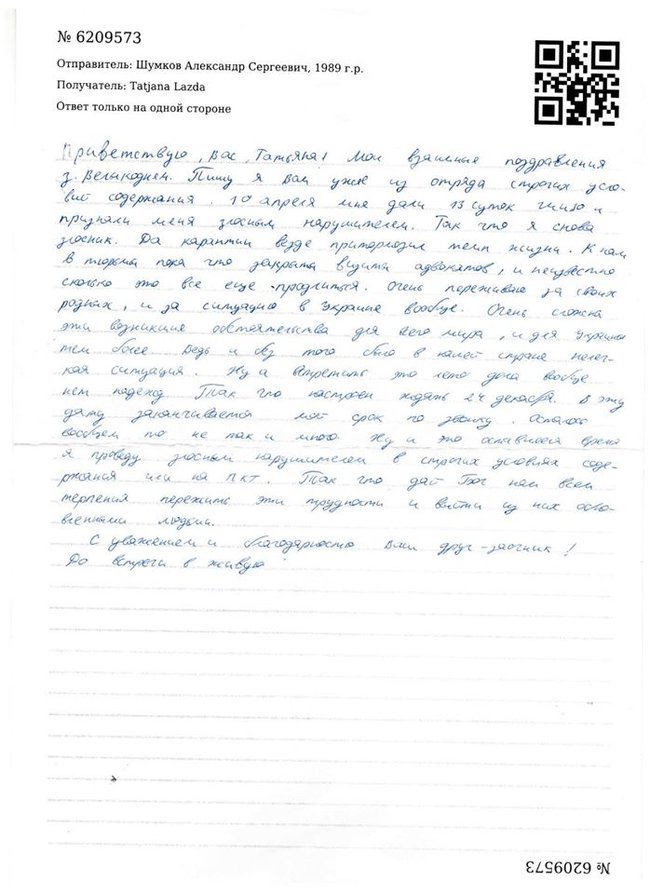 № 6209573
Отправитель: Шумков Александр Сергеевич, 1989 г.р.
Получатель: Tatjana Lazda
Ответ только на одной стороне
Приветствую, Вас, Татьяна! Мои взаимные поздравления
з Великоднем. Пишу я Вам уже из отряда строгих усло-
вий содержания. 10 апреля мне дали 13 суток шизо и
признали меня злосным нарушителем. Так что я снова
злосник. Да карантин везде притормозил темп жизни. К нам
в тюрьмы пока что закрыты визиты адвокатов, и неизвестно
сколько это все еще продлиться. Очень переживаю за своих
родных, и за ситуацию в Украине вообще. Очень сложна
эти возникшие обстоятельства для всего мира, и для Украины
тем более. Ведь и без того была в нашей стране нелег-
кая ситуация. Ну а встретить это лето дома вообще
нет надежд. Так что настроен ждать 24 декабря. В эту
дату заканчивается мой срок по звонку. Осталось
вообщем то не так и много. Ну и это оставшееся время
я проведу злосным нарушителем в строгих условиях соде-
ржания или на ПКТ. Так что дай Бог нам всем
терпения пережить эти трудности и выйти из них обно-
вленными людьми.
С уважением и благодарностью Ваш друг-заочник!
До встречи в живую
№ 6209573